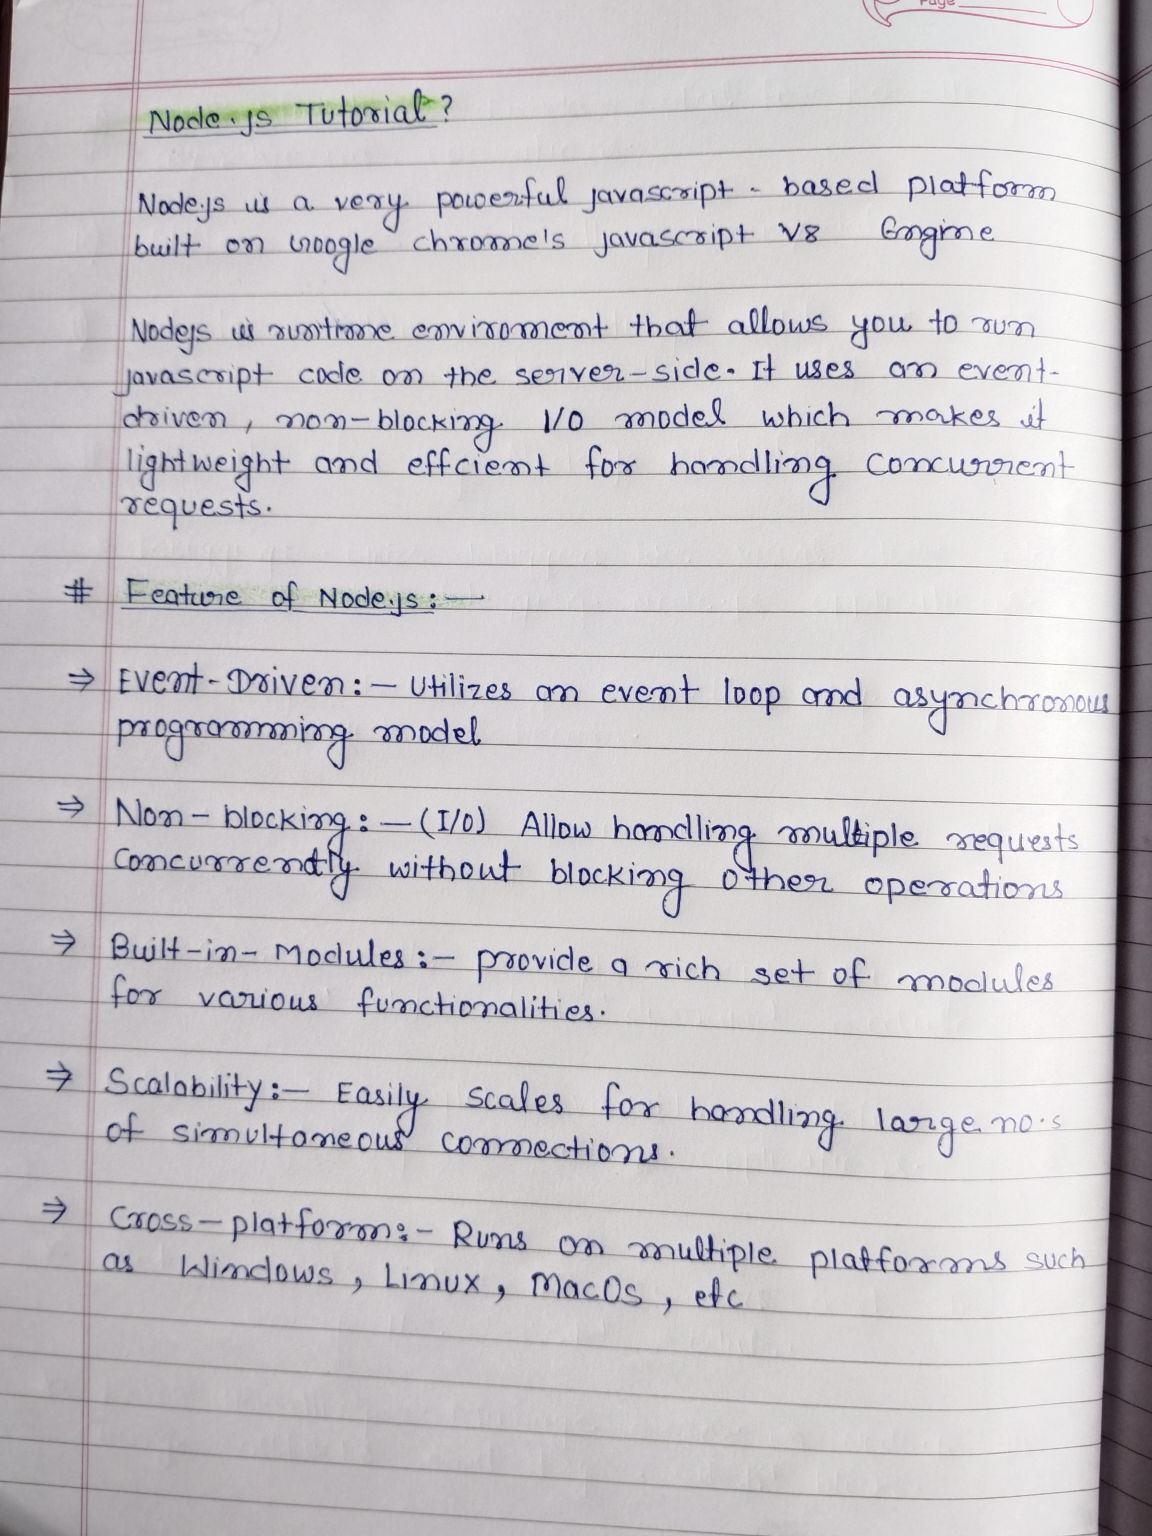 Page
Node.js Tutorial?
Nodejs is a very powerful javascript - based platform
built on Google chrome's javascript V8 Engine
Nodejs is runtime enviroment that allows you to run
javascript code on the server-side. It uses an event-
driven, non-blocking I/O model which makes it
lightweight and effcient for handling concurrent
requests.
# Feature of Node.js:—
⇒ Event-Driven:— Utilizes an event loop and asynchronous
programming model
⇒ Non-blocking:— (I/O) Allow handling multiple requests
concurrendtly without blocking other operations
⇒ Built-in-Modules:- provide a rich set of modules
for various functionalities.
⇒ Scalability:— Easily scales for handling large no.s
of simultaneous connections.
⇒ Cross-platform:- Runs on multiple platforms such
as Windows, Linux, MacOs, etc